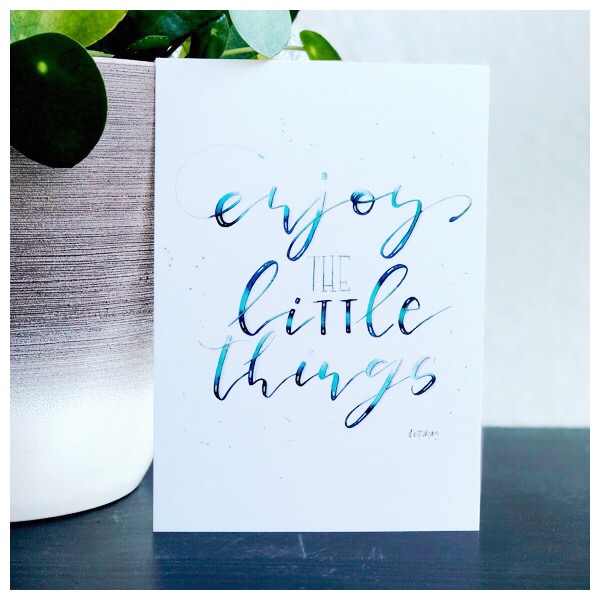 enjoy
THE
little
things